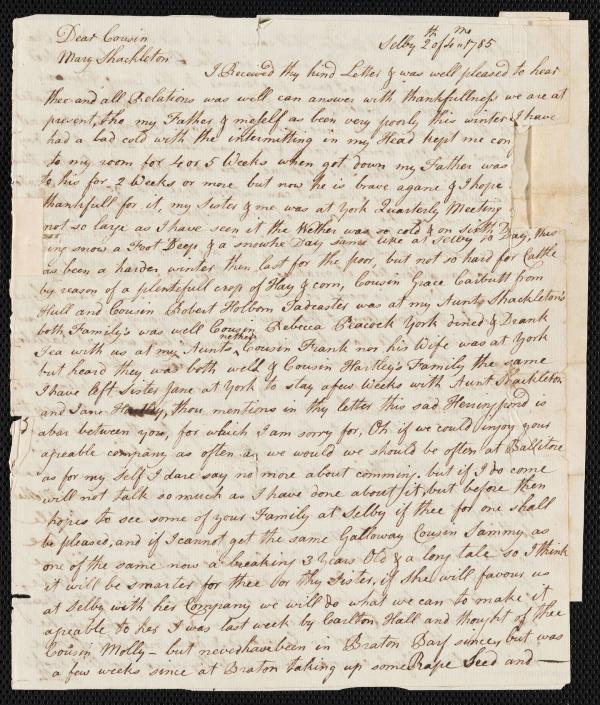 Dear Cousin
Mary Shackleton
Selby 2th of 4 mo 1785
I Received thy kind Letter & was well pleased to hear
thee and all Relations was well can answer with thankfullness we are at
present, tho my Father & meself as been very poorly this winter I have
had a bad cold with the intermitting in my Head kept me con
to my room for 4 or 5 Weeks when got down my Father was
to his for 2 Weeks or more but now he is brave agane & I hope
thankfull for it, my Sister & me was at York Quarterly Meeting
not so large as I have seen it the Wether was so cold & on sixth Day
snow a Foot Deep & a snowke Day same like at Selby to Day, this
as been a harder winter then last for the poor, but not so hard for Cattle
by reason of a plentefull crop of Hay & corn, Cousin Grace Carbutt from
Hull and Cousin Robert Holborn Tadcaster was at my Aunt Shackleton's
both Family's was well Cousin Rebecca Peacock York dined & Drank
Tea with us at my Aunts nether Cousin Frank nor his Wife was at York
but heard they was both well & Cousin Hartley's Family the same
I have left Sister Jane at York to stay a few Weeks with Aunt Shackleton
and Jane Hartley, thou mentions in thy letter this sad Herringpond is
abar between you, for which I am sorry for, Oh if we could injoy your
agreable company as often as we would we should be often at Ballitore
as for my self I dare say no more about comming. but if I do come
will not talk so much as I have done about it, but before then
hopes to see some of your Family at Selby if thee for one shall
be pleased, and if I cannot get the same Galloway Cousin Sammy as
one of the same now a breaking 3 Years Old & a long tale so I think
it will be smarter for thee or thy Sister, if she will favour us
at Selby with her Company we will do what we can to make it
agreable to her I was last week by Carlton Hall and thought of thee
Cousin Molly - but never have been in Braton Bary since, but was
a few weeks since at Braton taking up some Rape Seed and —